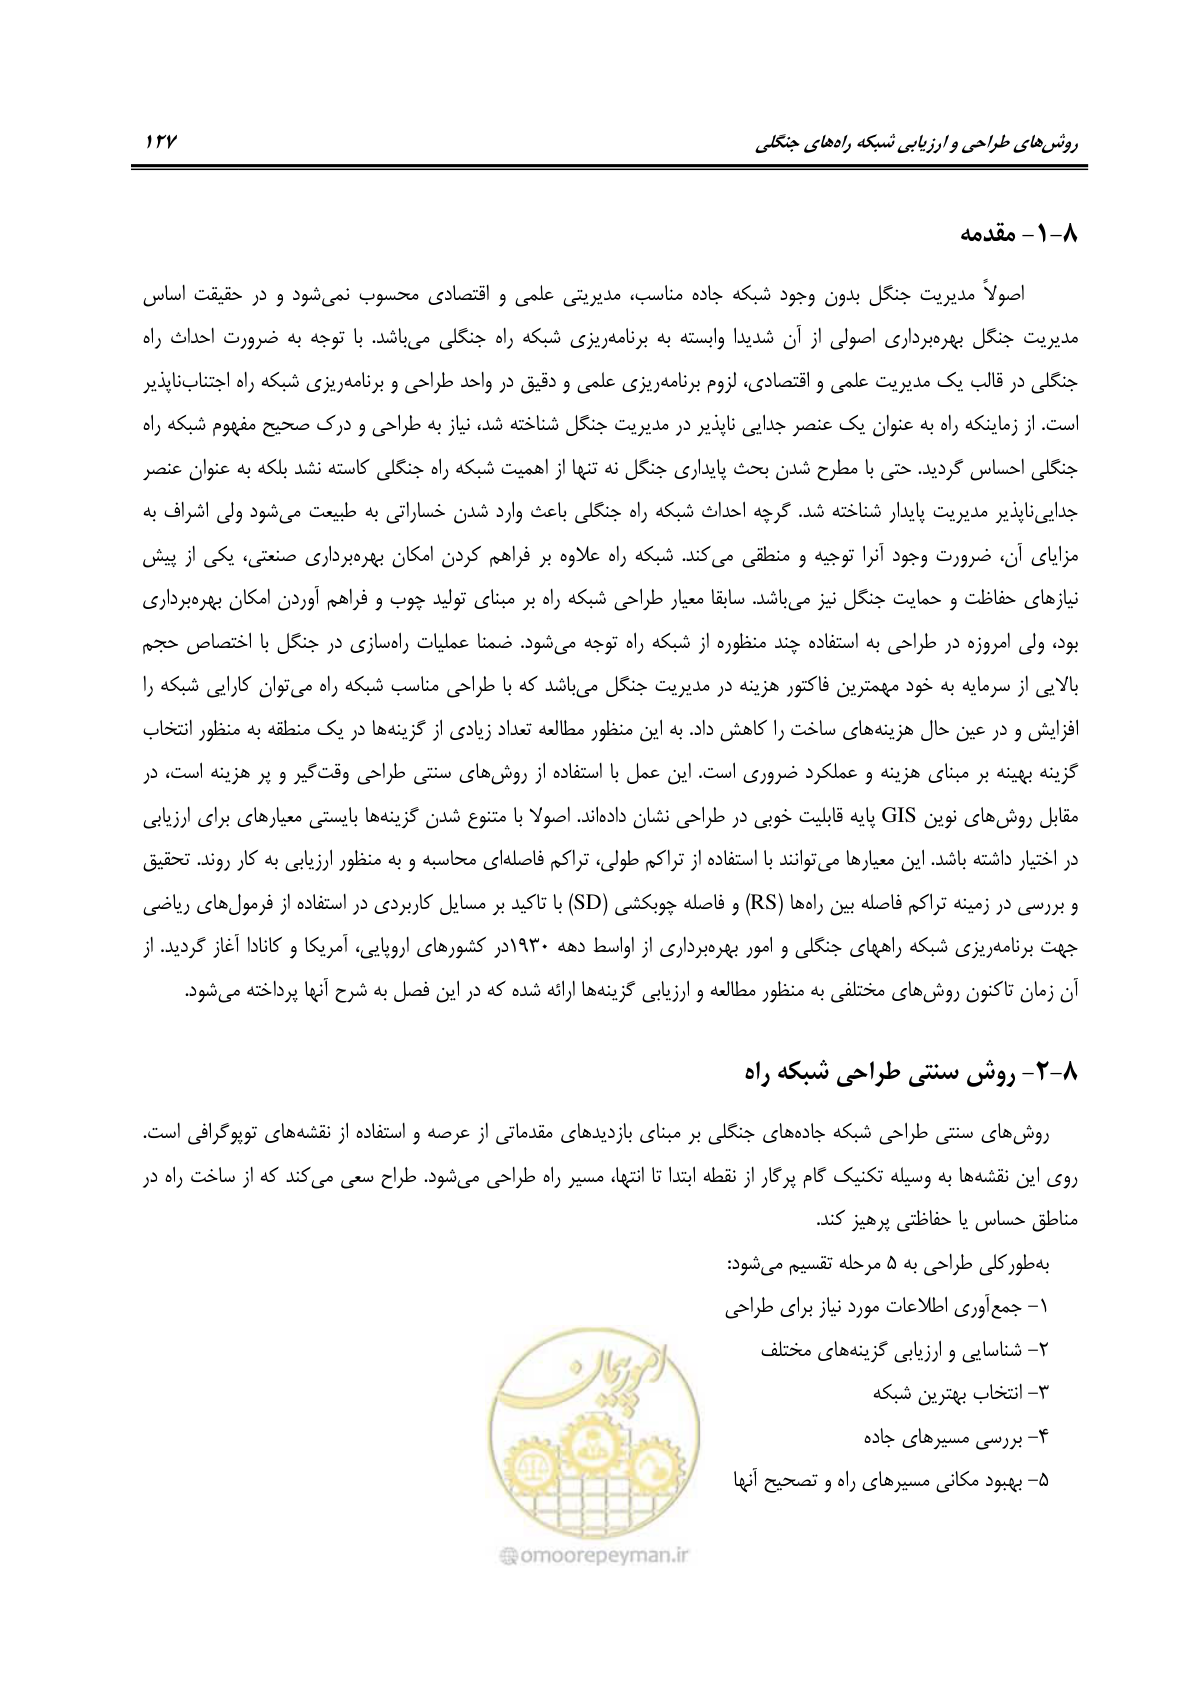 روش‌های طراحی و ارزیابی شبکه راه‌های جنگلی ۱۲۷
۸-۱- مقدمه
اصولاً مدیریت جنگل بدون وجود شبکه جاده مناسب، مدیریتی علمی و اقتصادی محسوب نمی‌شود و در حقیقت اساس
مدیریت جنگل بهره‌برداری اصولی از آن شدیدا وابسته به برنامه‌ریزی شبکه راه جنگلی می‌باشد. با توجه به ضرورت احداث راه
جنگلی در قالب یک مدیریت علمی و اقتصادی، لزوم برنامه‌ریزی علمی و دقیق در واحد طراحی و برنامه‌ریزی شبکه راه اجتناب‌ناپذیر
است. از زمانیکه راه به عنوان یک عنصر جدایی ناپذیر در مدیریت جنگل شناخته شد، نیاز به طراحی و درک صحیح مفهوم شبکه راه
جنگلی احساس گردید. حتی با مطرح شدن بحث پایداری جنگل نه تنها از اهمیت شبکه راه جنگلی کاسته نشد بلکه به عنوان عنصر
جدایی‌ناپذیر مدیریت پایدار شناخته شد. گرچه احداث شبکه راه جنگلی باعث وارد شدن خساراتی به طبیعت می‌شود ولی اشراف به
مزایای آن، ضرورت وجود آنرا توجیه و منطقی می‌کند. شبکه راه علاوه بر فراهم کردن امکان بهره‌برداری صنعتی، یکی از پیش
نیازهای حفاظت و حمایت جنگل نیز می‌باشد. سابقا معیار طراحی شبکه راه بر مبنای تولید چوب و فراهم آوردن امکان بهره‌برداری
بود، ولی امروزه در طراحی به استفاده چند منظوره از شبکه راه توجه می‌شود. ضمنا عملیات راه‌سازی در جنگل با اختصاص حجم
بالایی از سرمایه به خود مهمترین فاکتور هزینه در مدیریت جنگل می‌باشد که با طراحی مناسب شبکه راه می‌توان کارایی شبکه را
افزایش و در عین حال هزینه‌های ساخت را کاهش داد. به این منظور مطالعه تعداد زیادی از گزینه‌ها در یک منطقه به منظور انتخاب
گزینه بهینه بر مبنای هزینه و عملکرد ضروری است. این عمل با استفاده از روش‌های سنتی طراحی وقت‌گیر و پر هزینه است، در
مقابل روش‌های نوین GIS پایه قابلیت خوبی در طراحی نشان داده‌اند. اصولا با متنوع شدن گزینه‌ها بایستی معیارهای برای ارزیابی
در اختیار داشته باشد. این معیارها می‌توانند با استفاده از تراکم طولی، تراکم فاصله‌ای محاسبه و به منظور ارزیابی به کار روند. تحقیق
و بررسی در زمینه تراکم فاصله بین راه‌ها (RS) و فاصله چوبکشی (SD) با تاکید بر مسایل کاربردی در استفاده از فرمول‌های ریاضی
جهت برنامه‌ریزی شبکه راههای جنگلی و امور بهره‌برداری از اواسط دهه ۱۹۳۰در کشورهای اروپایی، آمریکا و کانادا آغاز گردید. از
آن زمان تاکنون روش‌های مختلفی به منظور مطالعه و ارزیابی گزینه‌ها ارائه شده که در این فصل به شرح آنها پرداخته می‌شود.
۸-۲- روش سنتی طراحی شبکه راه
روش‌های سنتی طراحی شبکه جاده‌های جنگلی بر مبنای بازدیدهای مقدماتی از عرصه و استفاده از نقشه‌های توپوگرافی است.
روی این نقشه‌ها به وسیله تکنیک گام پرگار از نقطه ابتدا تا انتها، مسیر راه طراحی می‌شود. طراح سعی می‌کند که از ساخت راه در
مناطق حساس یا حفاظتی پرهیز کند.
به‌طورکلی طراحی به ۵ مرحله تقسیم می‌شود:
۱- جمع‌آوری اطلاعات مورد نیاز برای طراحی
۲- شناسایی و ارزیابی گزینه‌های مختلف
۳- انتخاب بهترین شبکه
۴- بررسی مسیرهای جاده
۵- بهبود مکانی مسیرهای راه و تصحیح آنها
امور پیمان
@omoorepeyman.ir